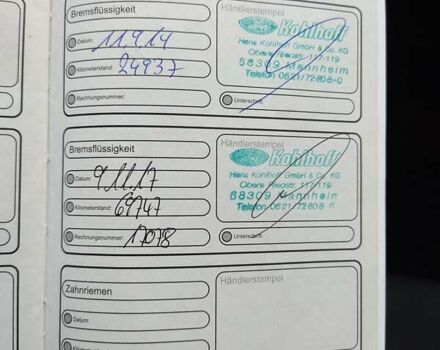 Bremsflüssigkeit
Händlerstempel
Datum: 11.9.14
Kohlhoff
Hans Kohlhoff GmbH & Co. KG
Obere Riedstr. 117-119
Kilometerstand: 24937
68309 Mannheim
Telefon 0621/72808-0
Rechnungsnummer:
Unterschrift:
Bremsflüssigkeit
Händlerstempel
Kohlhoff
Datum: 9.11.17
Hans Kohlhoff GmbH & Co. KG
Obere Riedstr. 117-119
Kilometerstand: 69747
68309 Mannheim
Telefon 0621/72808-0
Rechnungsnummer: 17078
Unterschrift:
Händlerstempel
Zahnriemen
Datum: